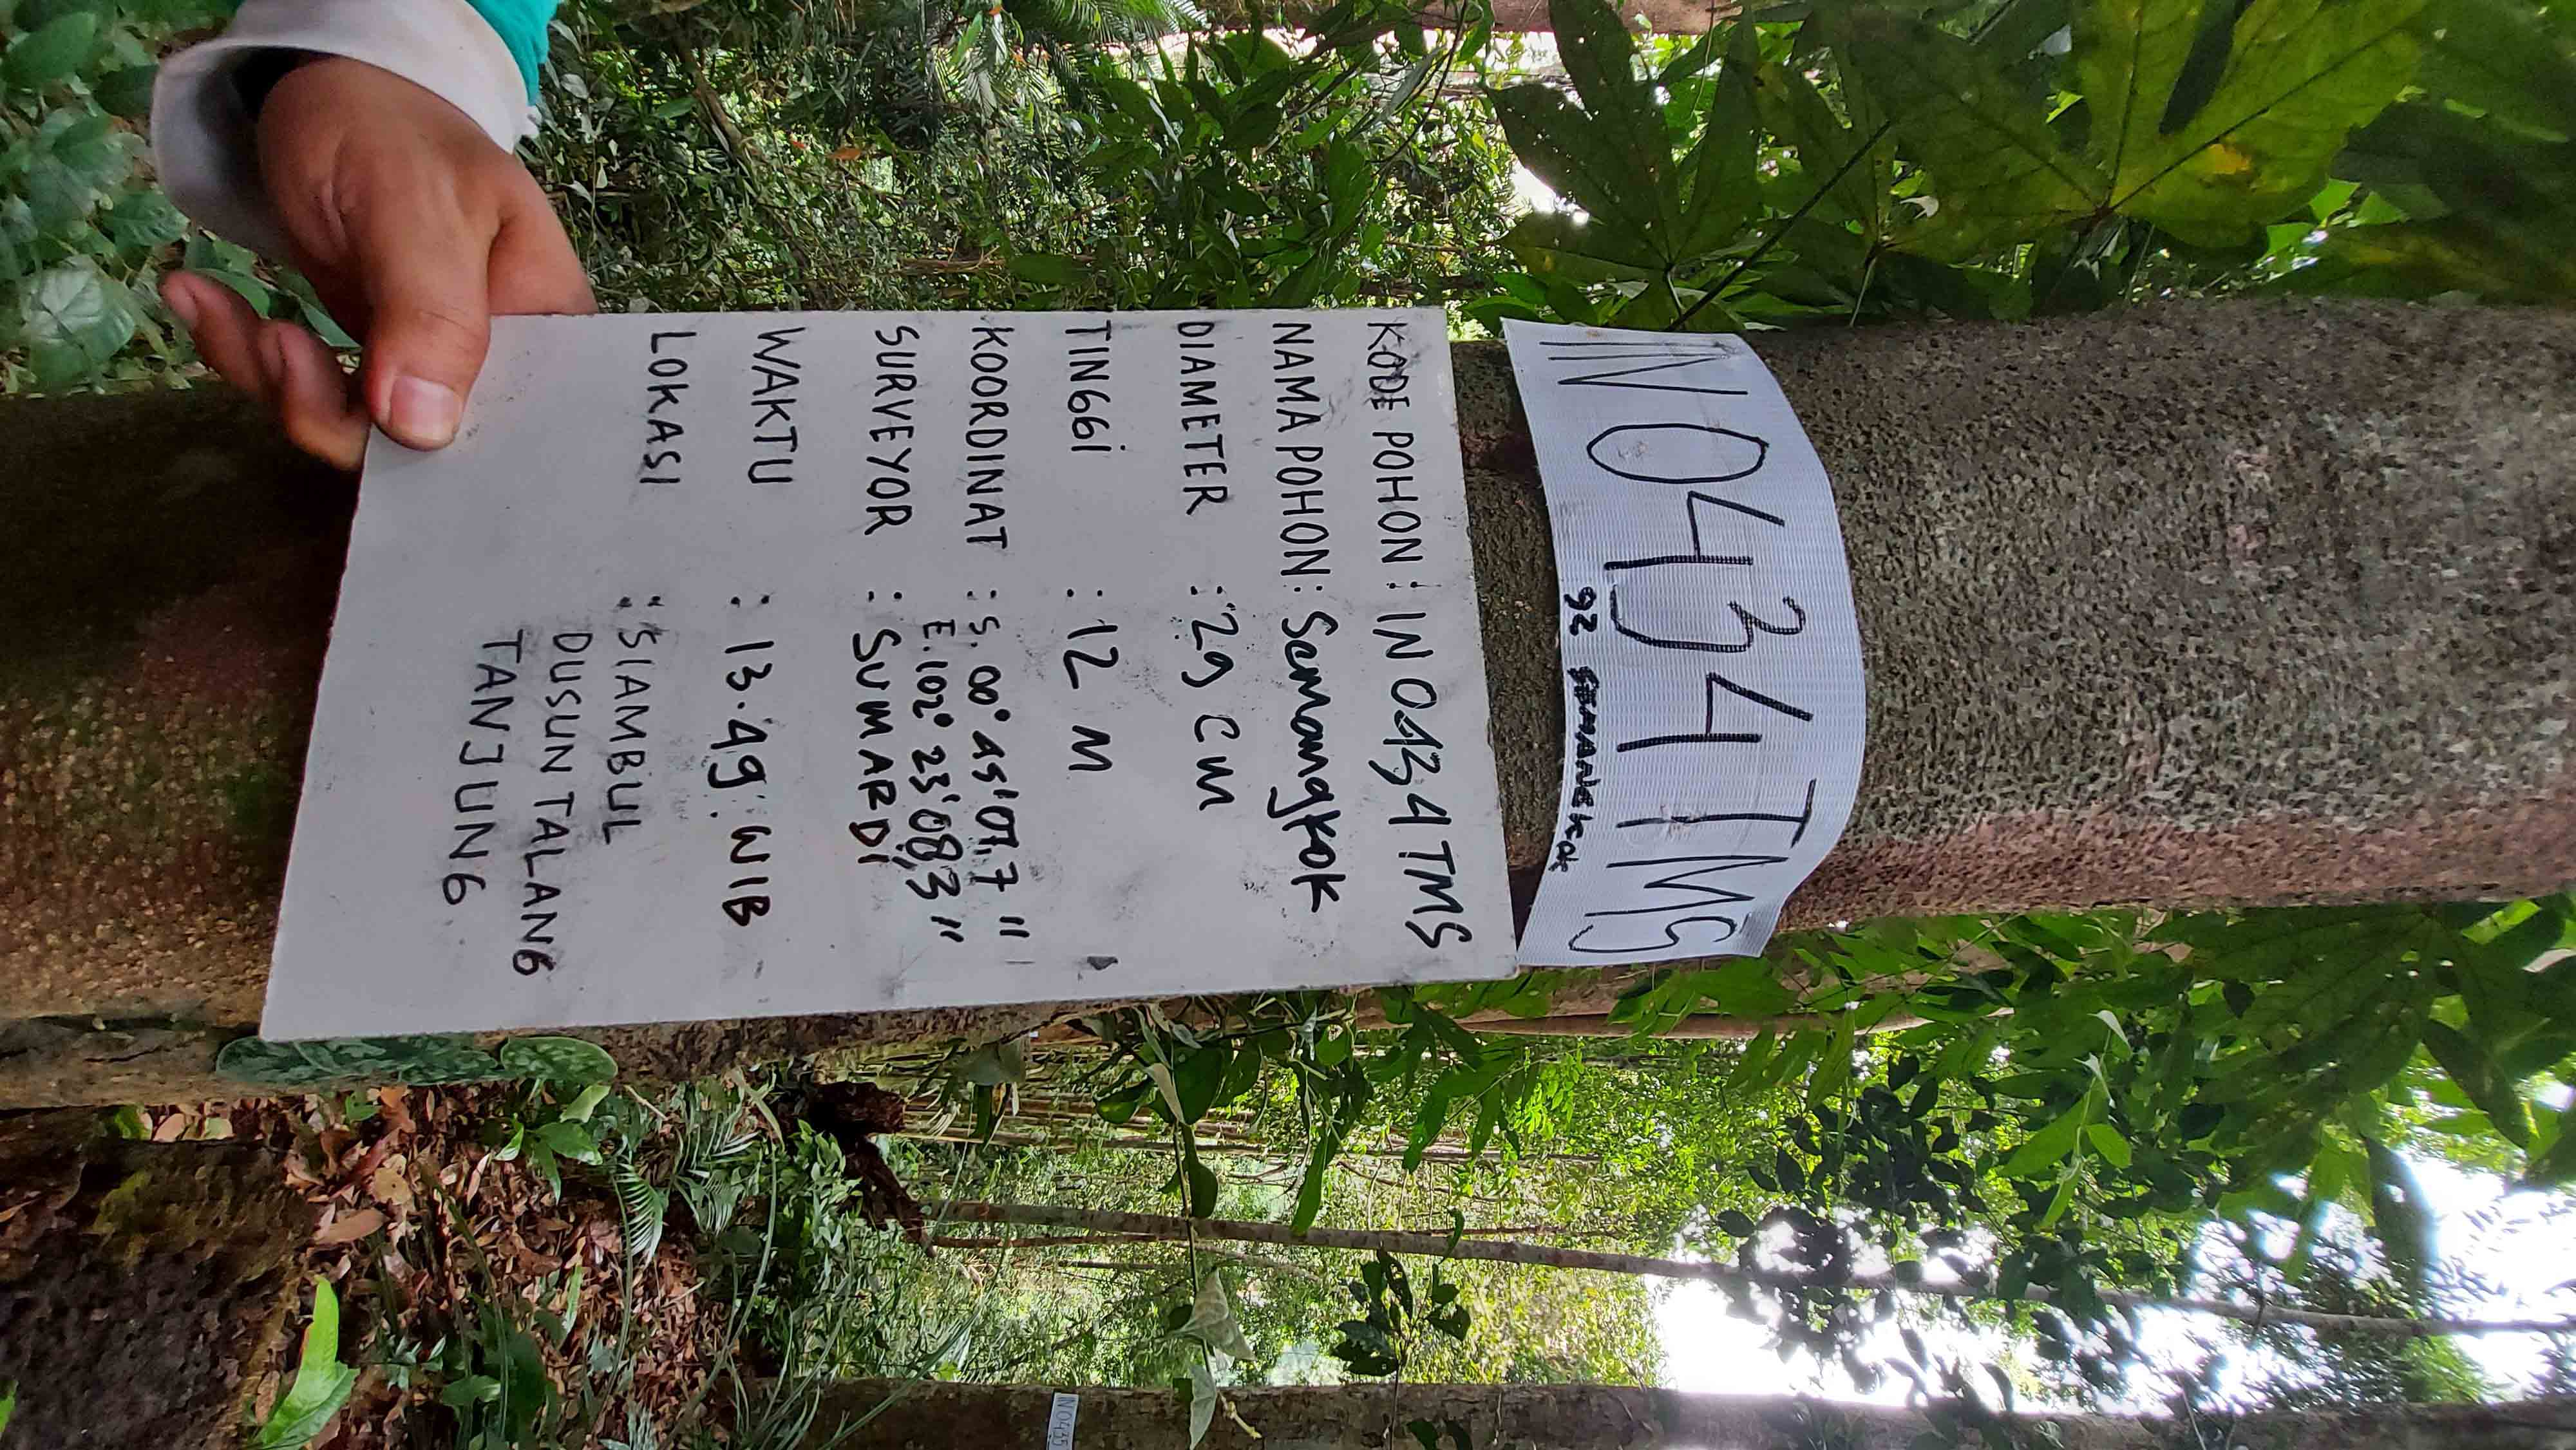 IN 0434 TMS
92 SEMANGKOK
KODE POHON : IN 0434 TMS
NAMA POHON : Semangkok
DIAMETER : 29 cm
TINGGi : 12 M
KOORDINAT : S. 00° 45' 07,7 "
E. 102° 23' 08,3 "
SURVEYOR : SUMARDi
WAKTU : 13.49 WIB
LOKASI : SIAMBUL
DUSUN TALANG
TANJUNG
IN 0435